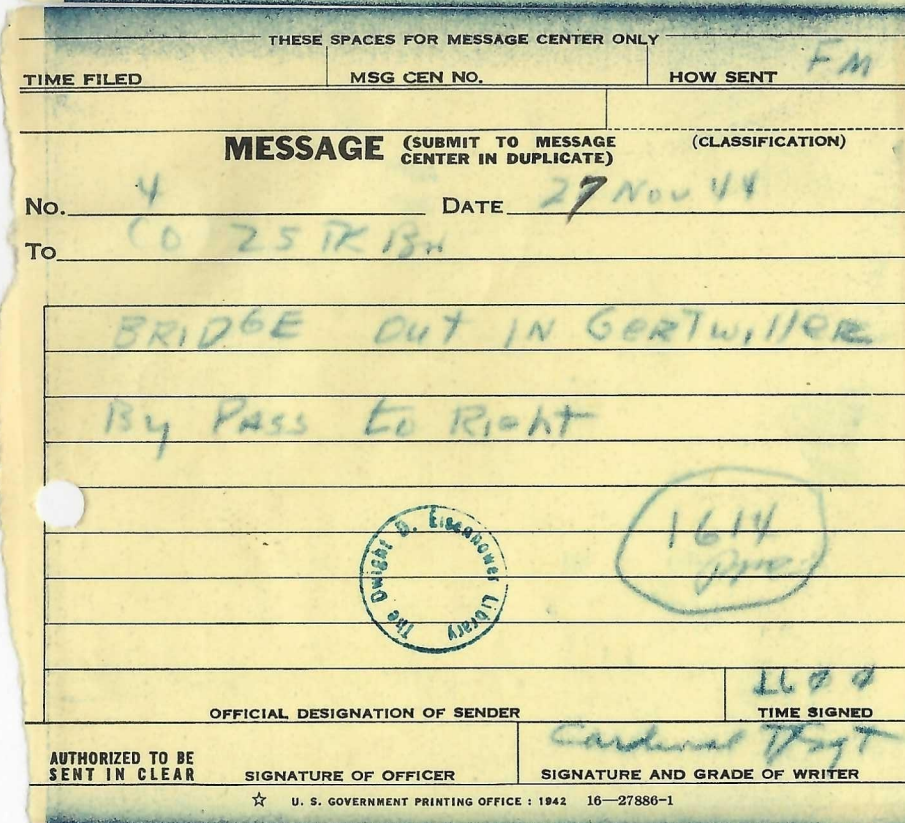 THESE SPACES FOR MESSAGE CENTER ONLY
TIME FILED MSG CEN NO. HOW SENT FM
MESSAGE (SUBMIT TO MESSAGE CENTER IN DUPLICATE) (CLASSIFICATION)
No. 4 DATE 27 Nov 44
To CO 25 TK BN
BRIDGE Out IN GERTwillER
By PASS to Right
1614
The Dwight D. Eisenhower Library
1600
OFFICIAL DESIGNATION OF SENDER TIME SIGNED
Cardinal T/Sgt
AUTHORIZED TO BE SENT IN CLEAR SIGNATURE OF OFFICER SIGNATURE AND GRADE OF WRITER
☆ U. S. GOVERNMENT PRINTING OFFICE : 1942 16—27886-1